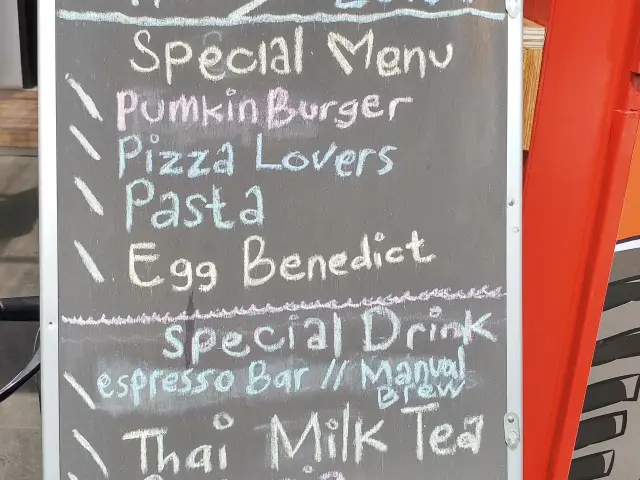 Special Menu
Pumkin Burger
Pizza Lovers
Pasta
Egg Benedict
Special Drink
espresso Bar // Manual
Brew
Thai Milk Tea